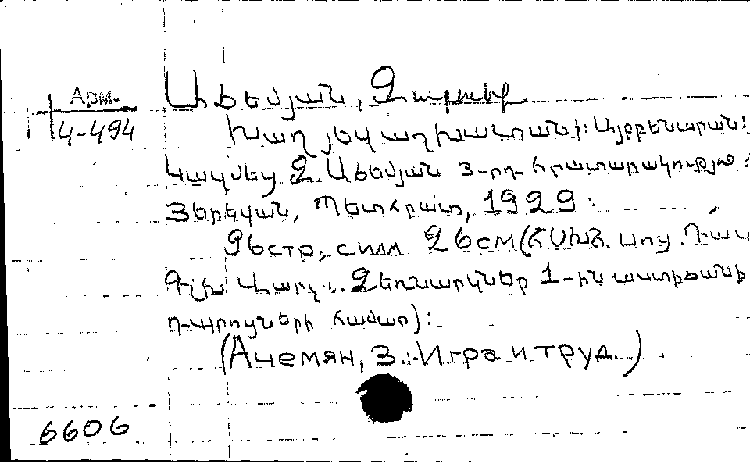 Арм.
4-494
Աճեմյան, Զարուհի
Խաղ յեվ աշխատանք: Այբբենարան:
Կազմեց Զ. Աճեմյան 3-րդ հրատարակություն:
Յերեվան, Պետհրատ, 1929:
96стр., с илл 26см (ՀՍԽՀ. Լուս.
Գլխ վարչ. Ձեռնարկներ 1-ին աստիճանի
դպրոցների համար):
(Ачемян, З. Игра и труд.)
6606